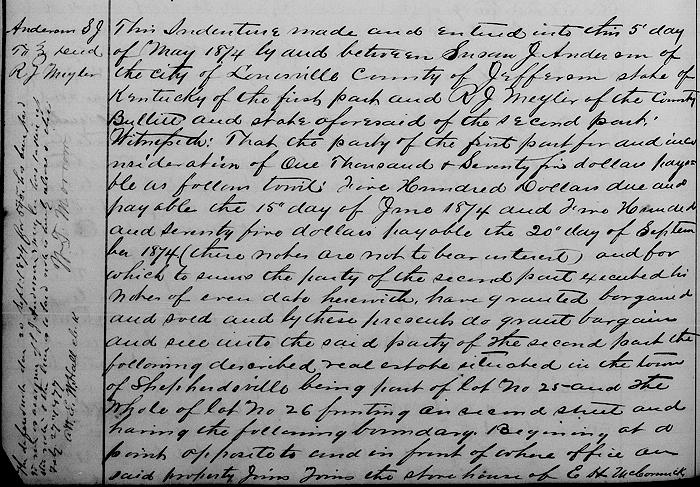 Anderson S J
To } Deed
R J Meyler
This Indenture made and entered into this 5" day
of May 1874 by and between Susan J Anderson of
the city of Louisville County of Jefferson state of
Kentucky of the first part and R J Meyler of the County
Bullitt and state aforesaid of the second part;
Witnesseth: That the party of the first part for and in con
nsideration of One Thousand & Seventy five dollars paya
ble as follows towit: Five Hundred Dollars due and
payable the 15" day of June 1874 and Five Hundred
and seventy five dollars payable the 20" day of Septem
ber 1874 (these notes are not to bear interest) and for
which to sums the party of the second part executed his
notes of even date herewith, have granted bargained
and sold and by these presents do grant bargain
and sell unto the said party of the second part the
following described real estate situated in the town
of Shepherdsville being part of lot No 25 and the
Whole of lot No 26 fronting on second street and
having the following boundary. Beginning at a
point opposite to and in front of where office on
said property Joins Joins the store house of E H McCormick
W. D. Morrow
Att S. W. Hall clerk